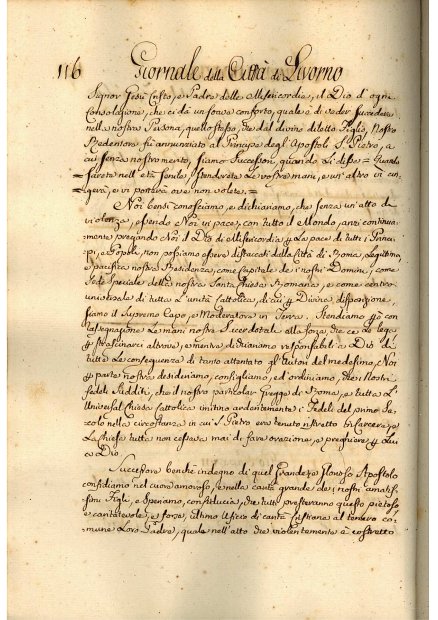 116 Giornale della Città di Livorno
Signor Gesù Cristo, e Padre delle Misericordie, il Dio d'ogni
Consolazione, che ci dà un soave conforto, quale è di veder succedere
nella nostra Persona, quello stesso, che dal divino diletto Figlio, Nostro
Redentore fù annunziato al Principe degli Apostoli S. Pietro, a
cui senza nostro merito, siamo Successori, quando Li disse = Quando
sarete nell'età senile, stenderete Le vostre mani, e un'altro vi cin-
gerà, e vi porterà ove non volete. =
Noi bensì conosciamo, e dichiariamo, che senza un'atto di
violenza, essendo Noi in pace, con tutto il Mondo, anzi continua-
mente pregando Noi il Dio di Misericordia p La pace di tutti i Princi-
pi, e Popoli, non possiamo essere distaccati della Città di Roma, Legittima,
e pacifica nostra Residenza, come capitale de' nostri Domini, come
Sede Speciale della nostra Santa Chiesa Romana, e come centro
universale di tutta L'unità Cattolica, di cui p Divina disposizione,
siamo il Supremo Capo, e Moderatore in Terra. Stendiamo p con
rassegnazione Le mani nostre Sacerdotali alla forza, che ce Le lega
p strascinarci altrove, e mentre dichiariamo responsabili a Dio di
tutte Le conseguenze di tanto attentato gli Autori del medesimo, Noi
p parte nostra desideriamo, consigliamo, ed ordiniamo, che i Nostri
fedeli Sudditi, che il nostro particolar Gregge di Roma, e tutta L'
Universal Chiesa Cattolica imitino ardentemente i Fedeli del primo Se-
colo nella circostanza in cui S. Pietro era tenuto ristretto in Carcere, e
La Chiesa tutta non cessava mai di fare orazione, e preghiere p Lui
a Dio.
Successore benchè indegno di quel Grande, e Glorioso Apostolo
confidiamo nel cuore amoroso, e nella carità grande de' nostri amatis-
simi Figli, e Speriamo, con fiducia, che tutti presteranno questo pietoso,
e caritatevole, e forse, ultimo Ufizio di carità Cristiana al tenero co-
mune Loro Padre, quale nell'atto che violentemente è costretto